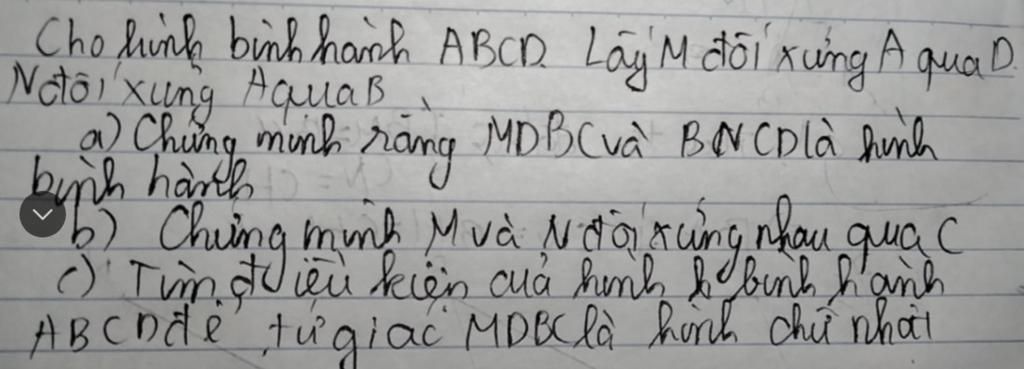 Cho hình bình hành ABCD. Lấy M đối xứng A qua D.
N đối xứng A qua B.
a) Chứng minh rằng MDBC và BNCD là hình
bình hành
b) Chứng minh M và N đối xứng nhau qua C
c) Tìm điều kiện của hình bình hành
ABCD để tứ giác MDBC là hình chữ nhật